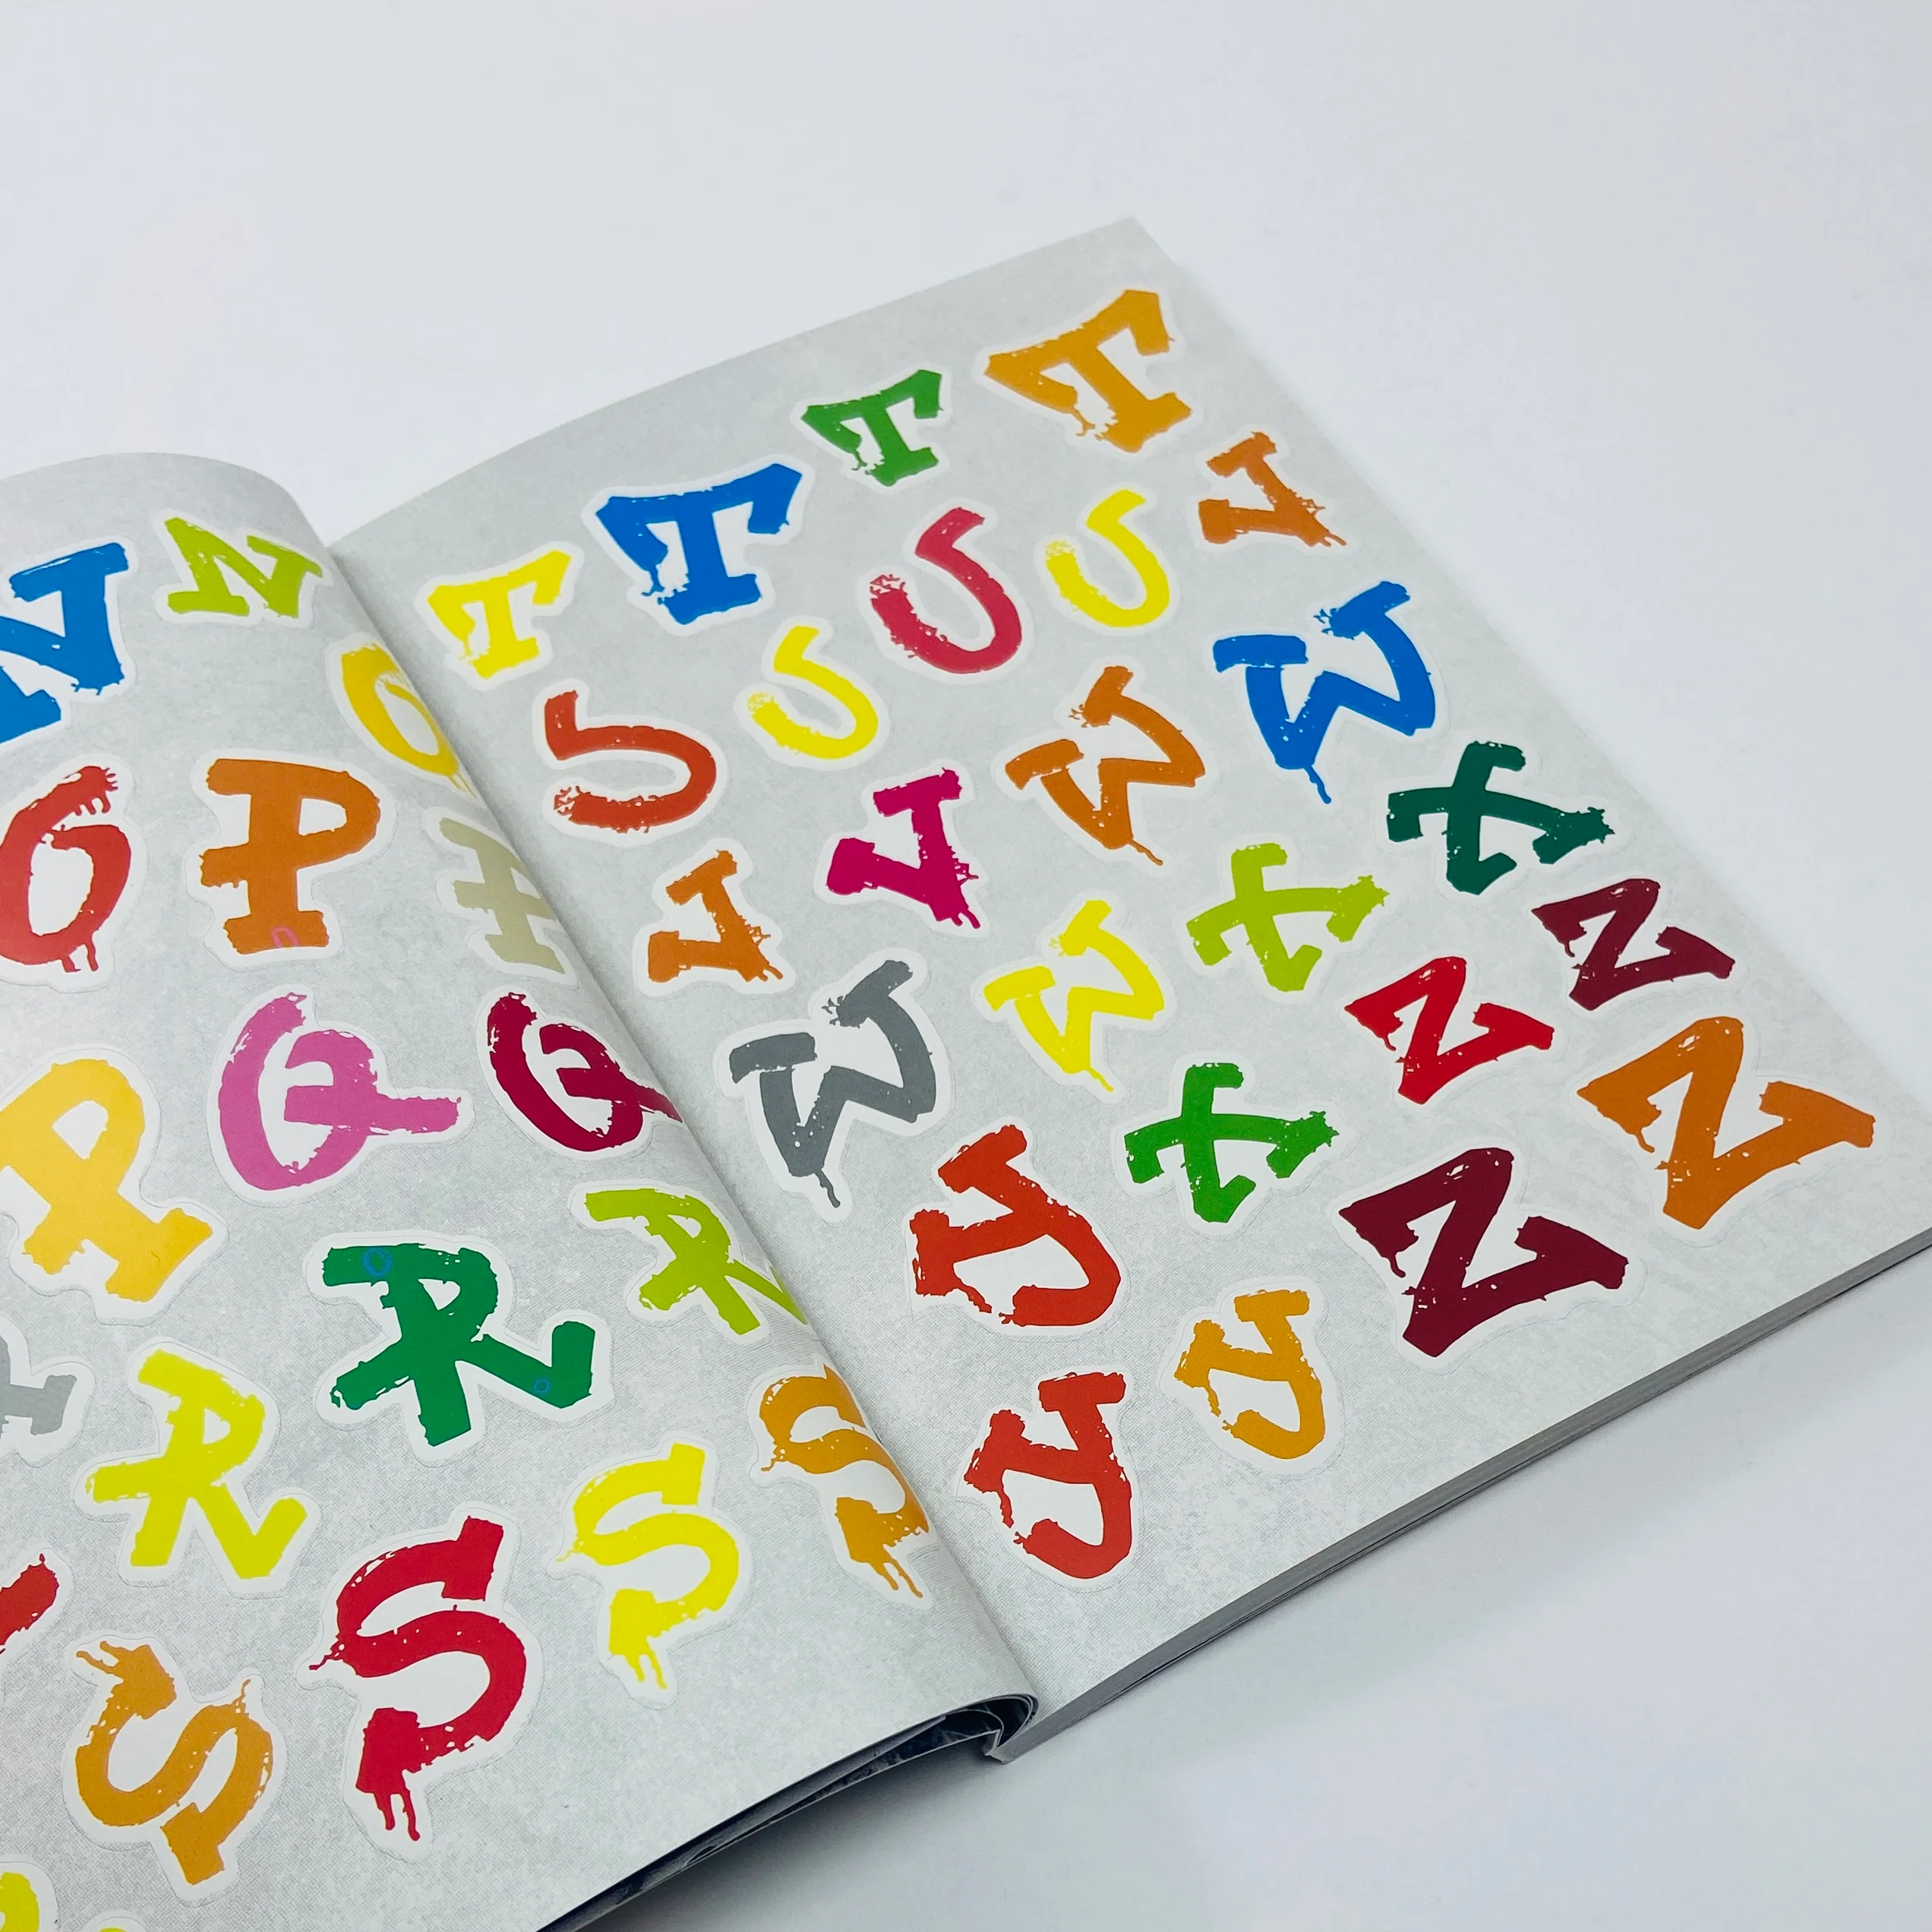 N N
O
O P P
P Q Q
R R
R
S S S
S
T T T T
U U U U
V V V
W W W W
X X X
Y Y Y
Z Z Z Z